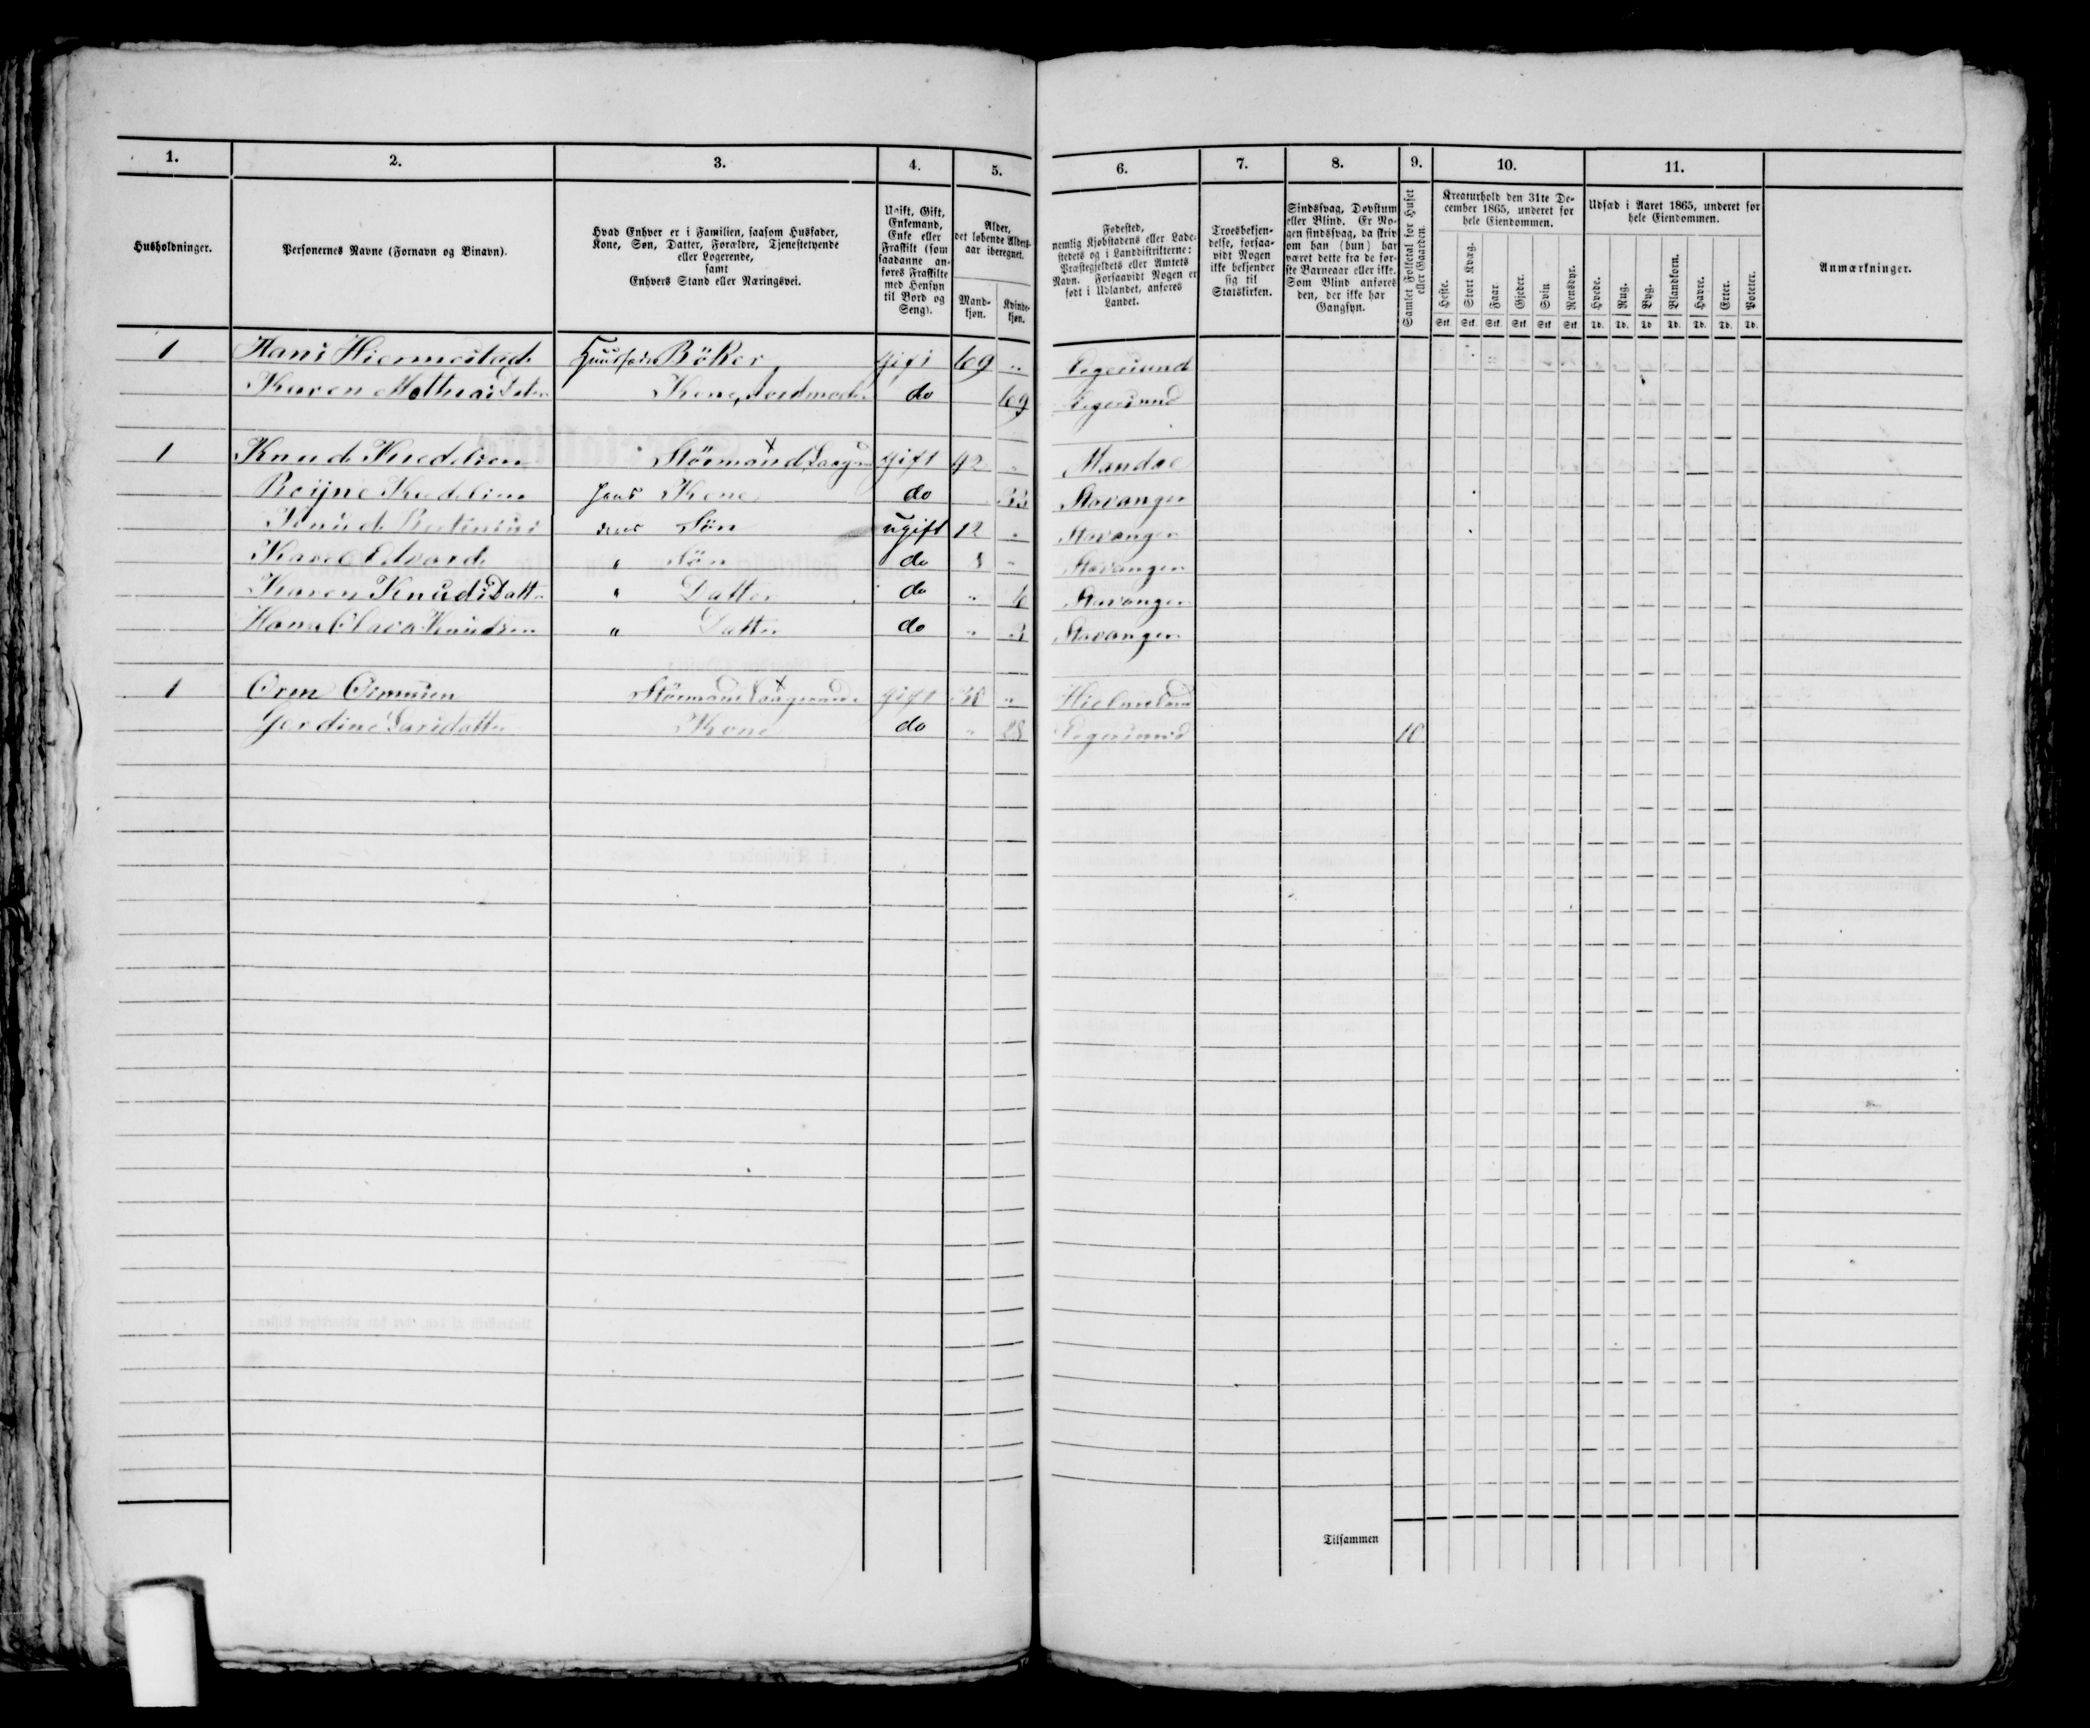 1. 2. 3. 4. 5. 6. 7. 8. 9. 10. 11.
Husholdninger.
Personernes Navne (Fornavn og Binavn).
Hvad Enhver er i Familien, saasom Husfader,
Kone, Søn, Datter, Forældre, Tjenestetyende
eller Logerende,
samt
Enhvers Stand eller Næringsvei.
Ugift, Gift,
Enkemand,
Enke eller
Fraskilt (som
saadanne an-
føres Fraskilte
med Hensyn
til Bord og
Seng).
Alder,
det løbende Alders-
aar iberegnet.
Mand-
kjøn.
Kvinde-
kjøn.
Fødested,
nemlig Kjøbstadens eller Lade-
stedets og i Landdistrikterne:
Præstegjeldets eller Amtets
Navn. Forsaavidt Nogen er
født i Udlandet, anføres
Landet.
Troesbekjen-
delse, forsaa-
vidt Nogen
ikke bekjender
sig til
Statskirken.
Sindssvag, Døvstum
eller Blind. Er No-
gen sindssvag, da skriv
om han (hun) har
været dette fra de før-
ste Barneaar eller ikke.
Som Blind anføres
den, der ikke har
Gangsyn.
Samlet Folketal for Huset
eller Gaarden.
Kreaturhold den 31te De-
cember 1865, underet for
hele Eiendommen.
Heste. Stort Kvæg. Faar. Gjeder. Svin. Rensdyr.
Stk. Stk. Stk. Stk. Stk. Stk.
Udsæd i Aaret 1865, underet for
hele Eiendommen.
Hvede. Rug. Byg. Blandkorn. Havre. Erter. Poteter.
Td. Td. Td. Td. Td. Td. Td.
Anmærkninger.
1 Hans Bøker gift 69 " Eegersund
Karen Kone, do 69 Eegersund
1 Knud gift 42 " Mandal
hans Kone do 33 Stavanger
Knud deres Søn ugift 12 " Stavanger
Edvard " Søn do 8 " Stavanger
Karen Knudsdatter " Datter do " 6 Stavanger
Knudsen " Datter do " 3 Stavanger
1 Orm gift "
Gerdine Larsdatter Kone do " 28 Eegersund 10
Tilsammen